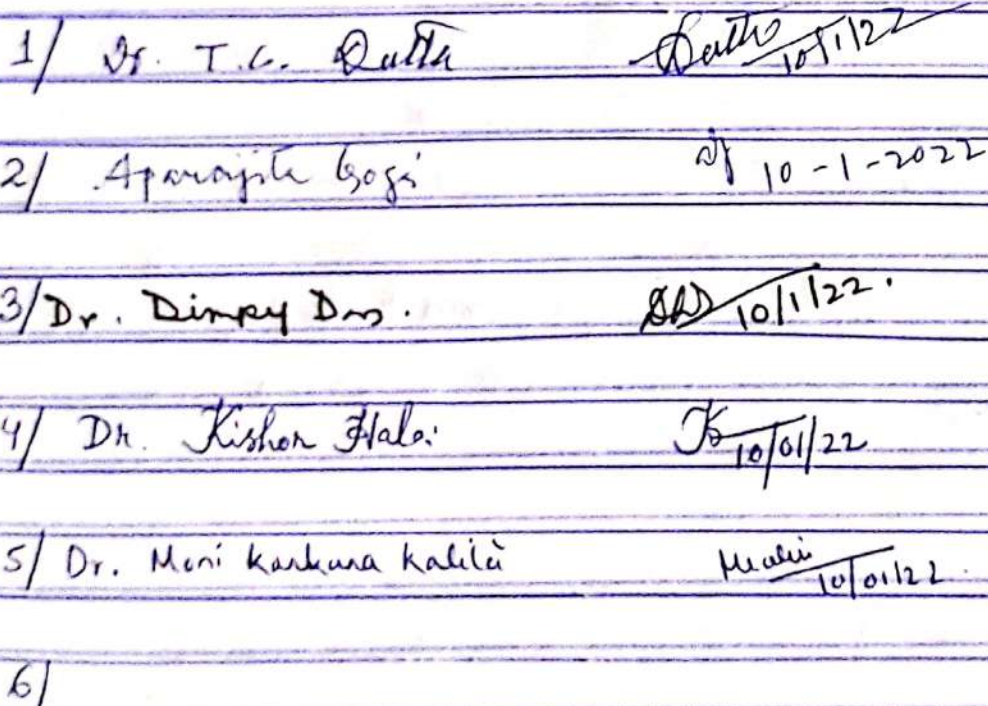 1/ Dr. T.C. Dutta Dutta 10/1/22
2/ Aparajita Gogi 10-1-2022
3/ Dr. Dimpy Das. DD 10/1/22.
4/ Dr. Kishor Haloi 10/01/22
5/ Dr. Moni Kankana Kalita 10/01/22
6/